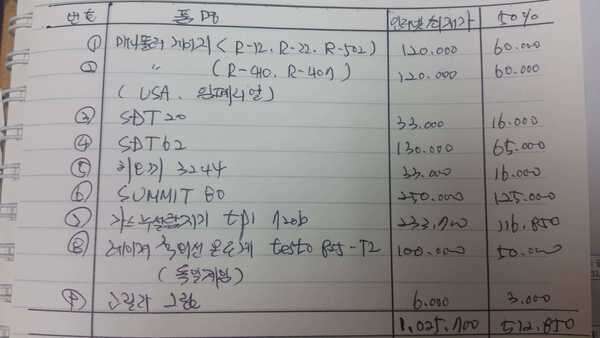 번호 품명 인터넷최저가 50%
① 매니폴더 게이지 < R-12. R-22. R-502) 120.000 60.000
② " ( R-410. R-407) 120.000 60.000
( USA. 임페리얼)
③ SDT 20 33.000 16.000
④ SDT 62 130.000 65.000
⑤ 3244 33.000 16.000
⑥ SUMMIT 80 250.000 125.000
⑦ 가스누설탐지기 tpi 720b 233,700 116.850
⑧ 레이저 적외선 온도계 testo 825-T2 100.000 50.000
(독일계임)
⑨ 6.000 3.000
1,025,700 512.850